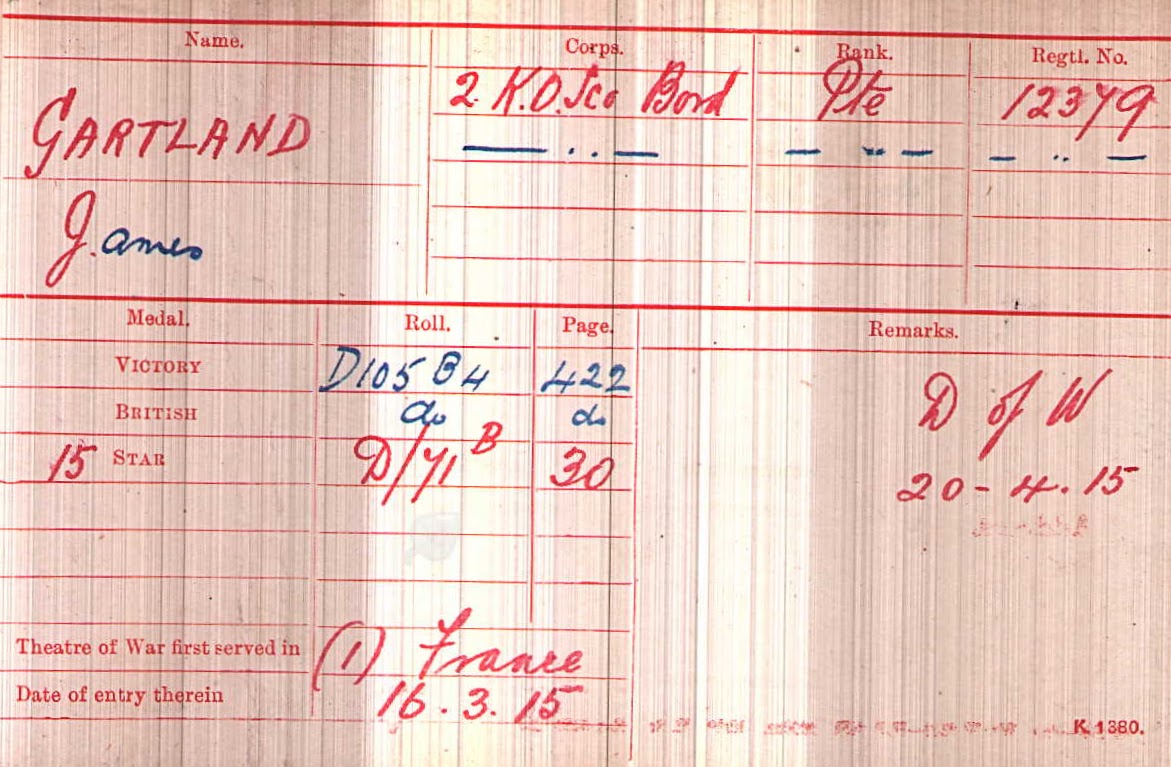 Name. Corps. Rank. Regtl. No.
GARTLAND 2. K.O. Sco Bord Pte 12379
— . . — — " — — " —
J.ames
Medal. Roll. Page. Remarks.
VICTORY D105 B4 422
BRITISH do do
15 STAR D/71 B 30
D of W
20-4.15
Theatre of War first served in (1) France
Date of entry therein 16.3.15
K 1380.